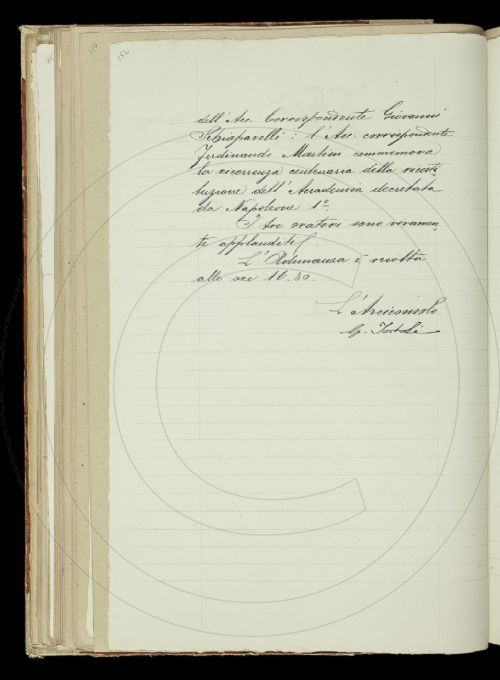 152
dell'Acc. Corrispondente Giovanni
Schiaparelli: l'Acc. corrispondente
Ferdinando Martini commemora
la ricorrenza centenaria della ricosti
tuzione dell'Accademia decretata
da Napoleone 1º
I tre oratori sono vivamen
te applauditi.
L'Adunanza è sciolta
alle ore 16.30.
L'Arciconsolo
G. Tortoli